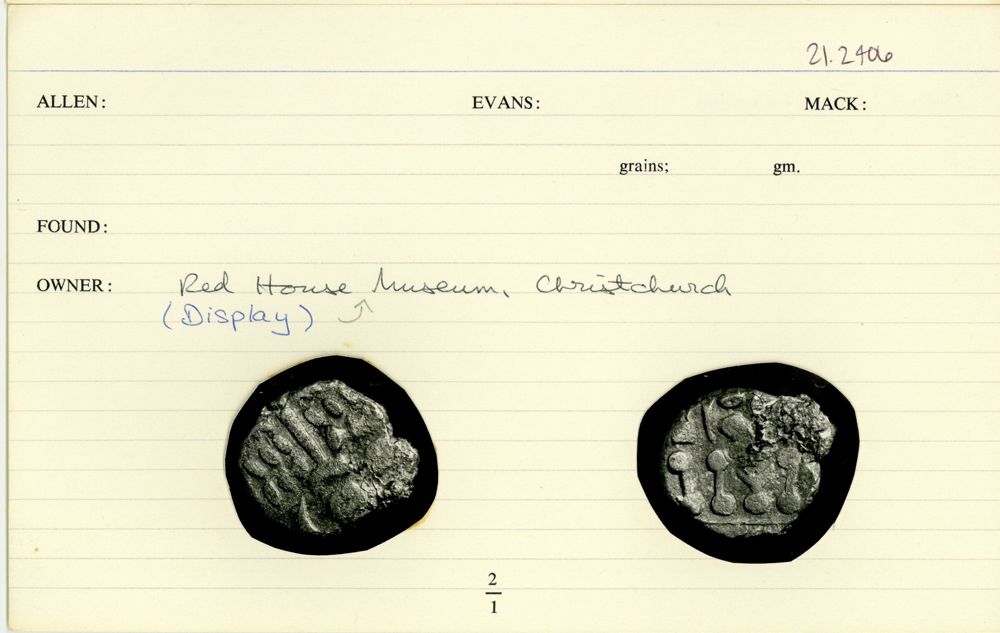 21.2406
ALLEN: EVANS: MACK:
grains; gm.
FOUND:
OWNER: Red House Museum, Christchurch
(Display)
2
1